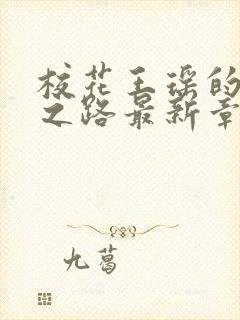 校花王瑶的
之路最新章
九葛